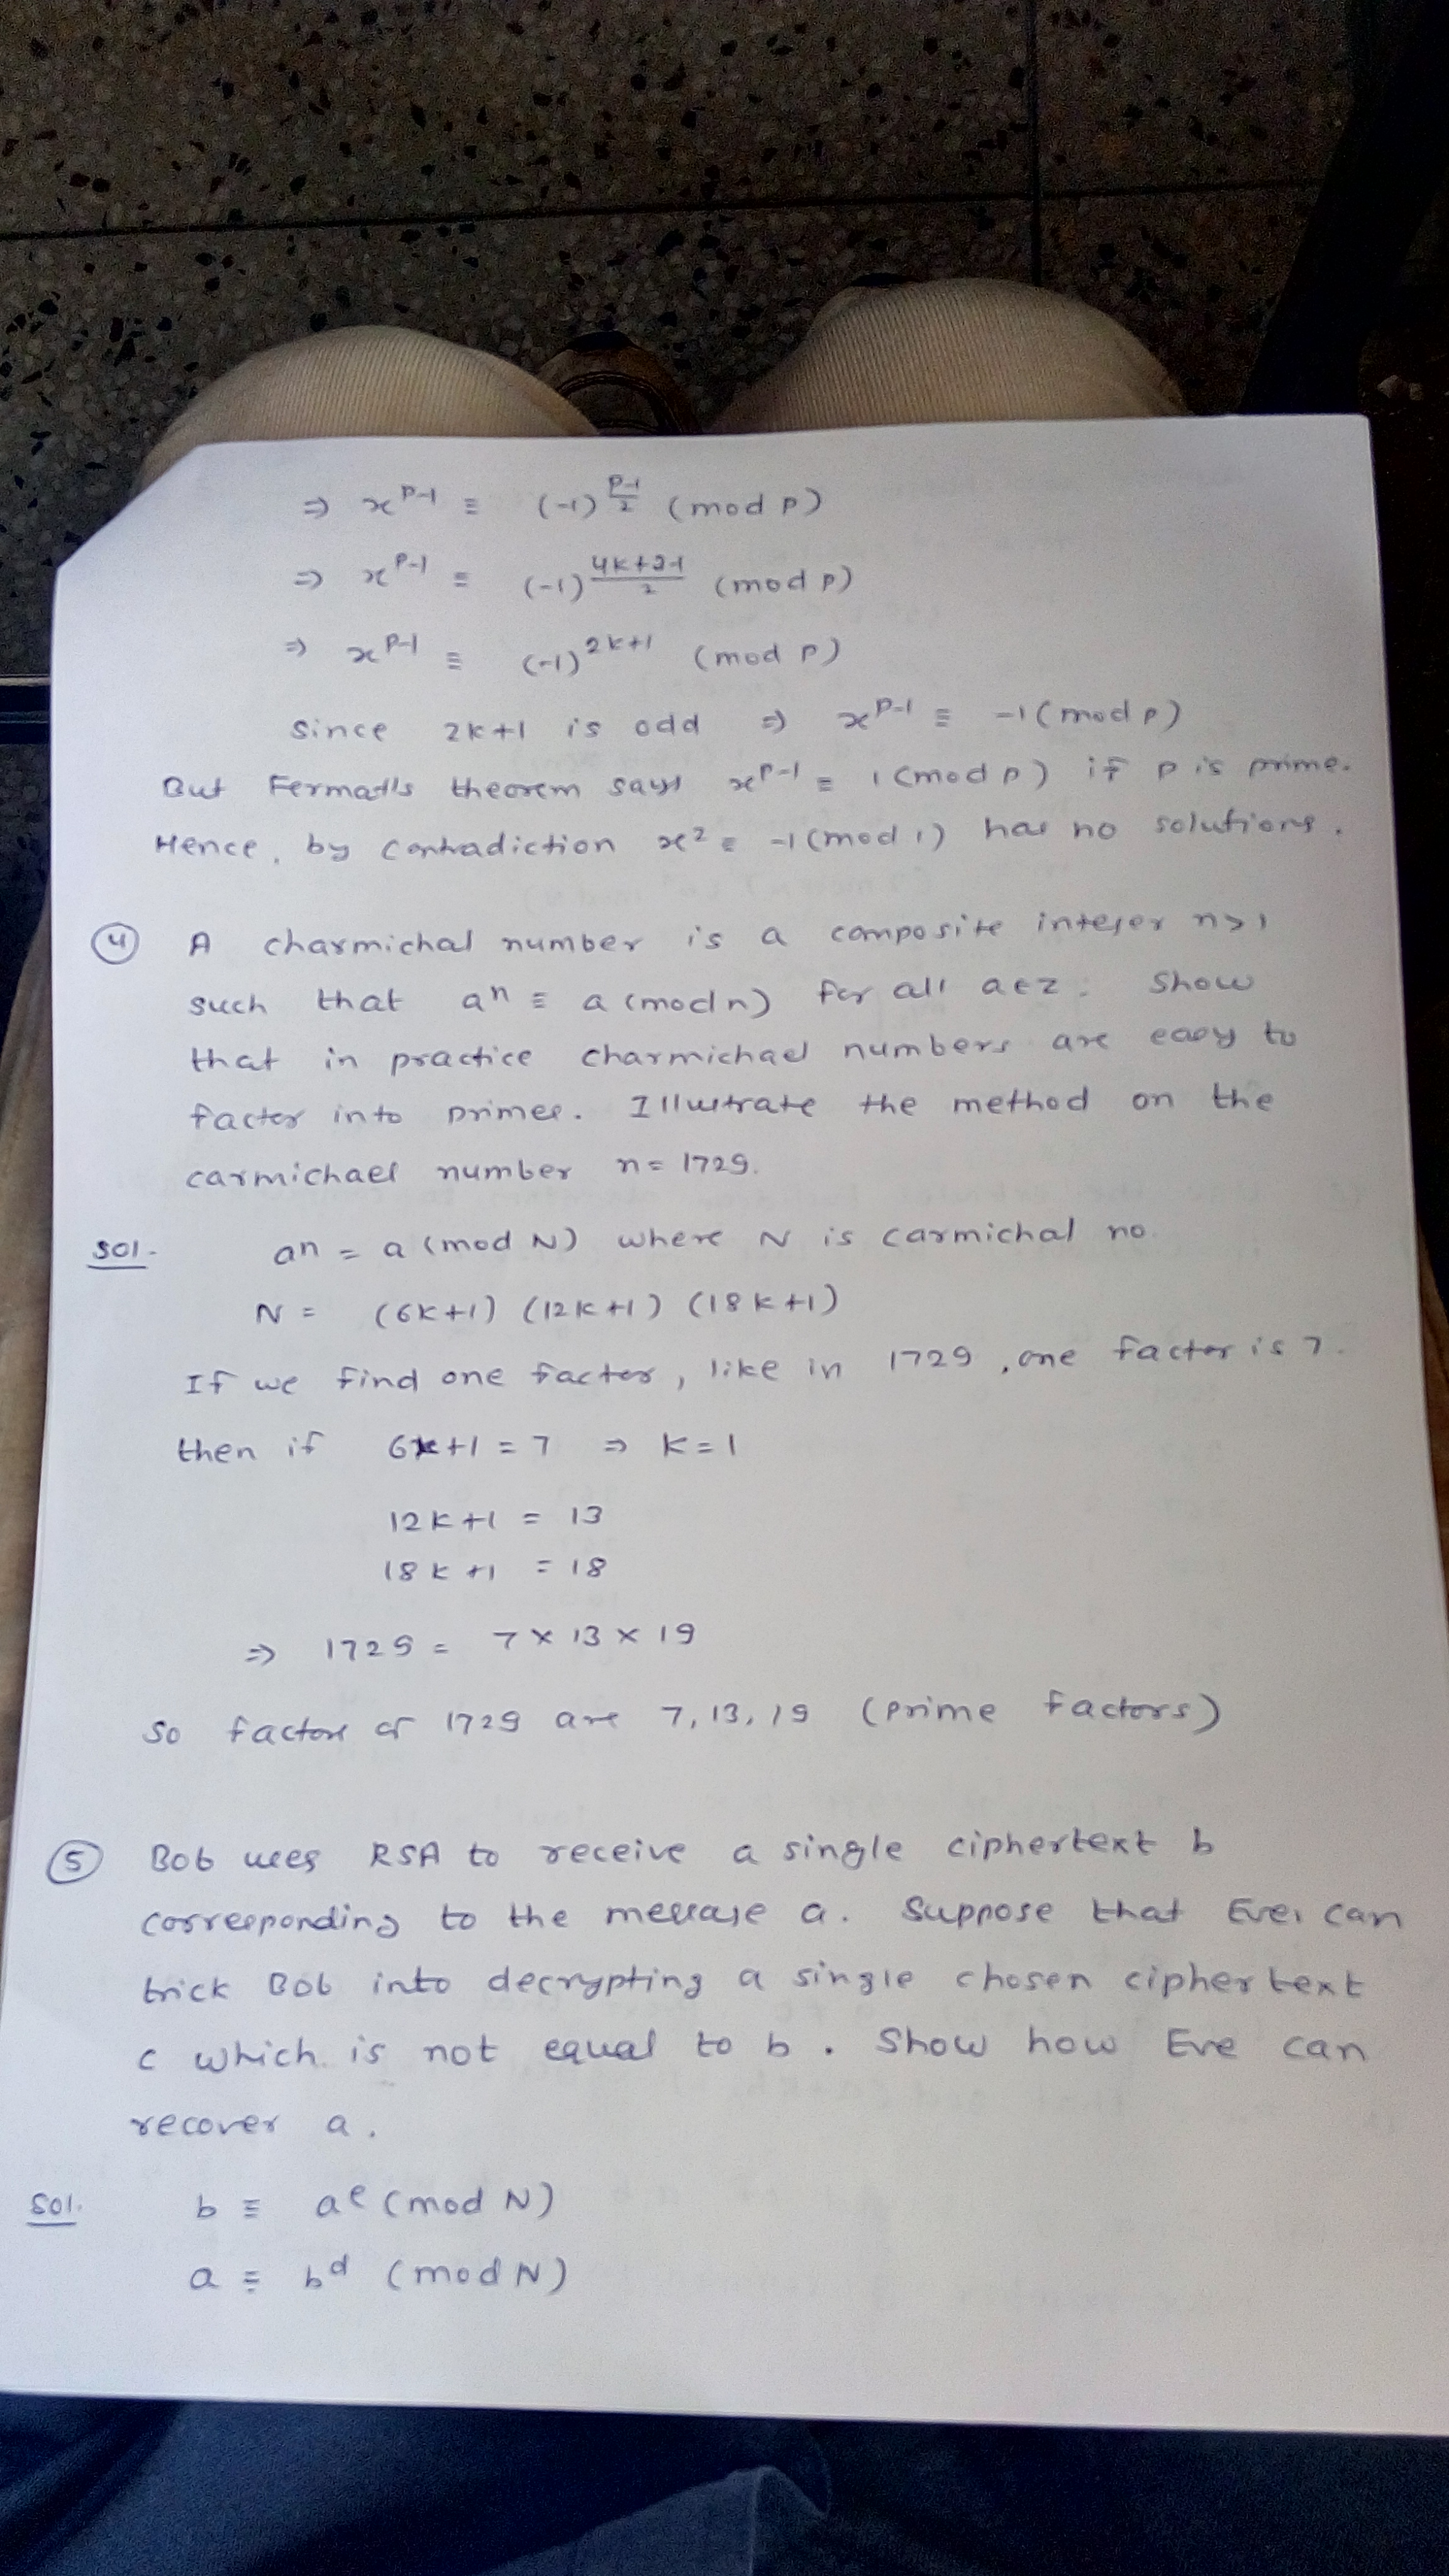 ⇒ x^{p-1} ≡ (-1)^{\frac{p-1}{2}} (mod p)
⇒ x^{p-1} ≡ (-1)^{\frac{4k+3-1}{2}} (mod p)
⇒ x^{p-1} ≡ (-1)^{2k+1} (mod p)
Since 2k+1 is odd ⇒ x^{p-1} ≡ -1 (mod p)
But Fermat's theorem says x^{p-1} ≡ 1 (mod p) if p is prime.
Hence, by contradiction x² ≡ -1 (mod 1) has no solutions.
④ A charmichal number is a composite integer n>1
such that aⁿ ≡ a (mod n) for all a∈z. Show
that in practice charmichael numbers are easy to
factor into primes. Illustrate the method on the
carmichael number n = 1729.
Sol. aⁿ = a (mod N) where N is carmichal no.
N = (6k+1) (12k+1) (18k+1)
If we find one factor, like in 1729, one factor is 7.
then if 6k+1 = 7 ⇒ k=1
12k+1 = 13
18k+1 = 18
⇒ 1729 = 7 × 13 × 19
So factors of 1729 are 7, 13, 19 (prime factors)
⑤ Bob uses RSA to receive a single ciphertext b
corresponding to the message a. Suppose that Eve, can
trick Bob into decrypting a single chosen ciphertext
c which is not equal to b. Show how Eve can
recover a.
Sol. b ≡ a^e (mod N)
a ≡ b^d (mod N)